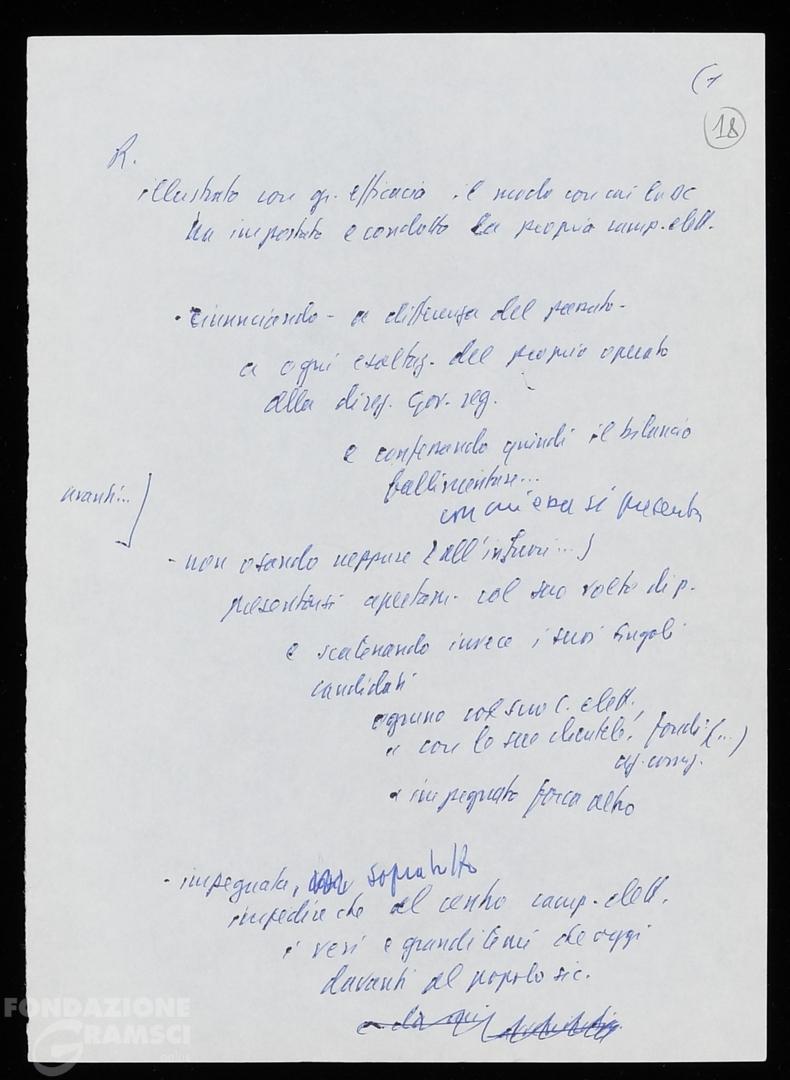 (1
18
R.
illustrato con gr. efficacia il modo con cui la DC
ha impostato e condotto la propria camp. elett.
• rinunciando - a differenza del passato -
a ogni esaltaz. del proprio operato
alla direz. Gov. reg.
e confessando quindi il bilancio
fallimentare...
con cui essa si presenta
avanti...
- non osando neppure (all'infuori...)
presentarsi apertam. col suo volto di p.
e scatenando invece i suoi singoli
candidati
ognuno col suo c. elett.
" con le sue clientele, fondi (...)
" impegnato
- impegnata, soprattutto
impedire che al centro camp. elett.
i veri e grandi temi che oggi
davanti al popolo sic.
FONDAZIONE
GRAMSCI
onlus